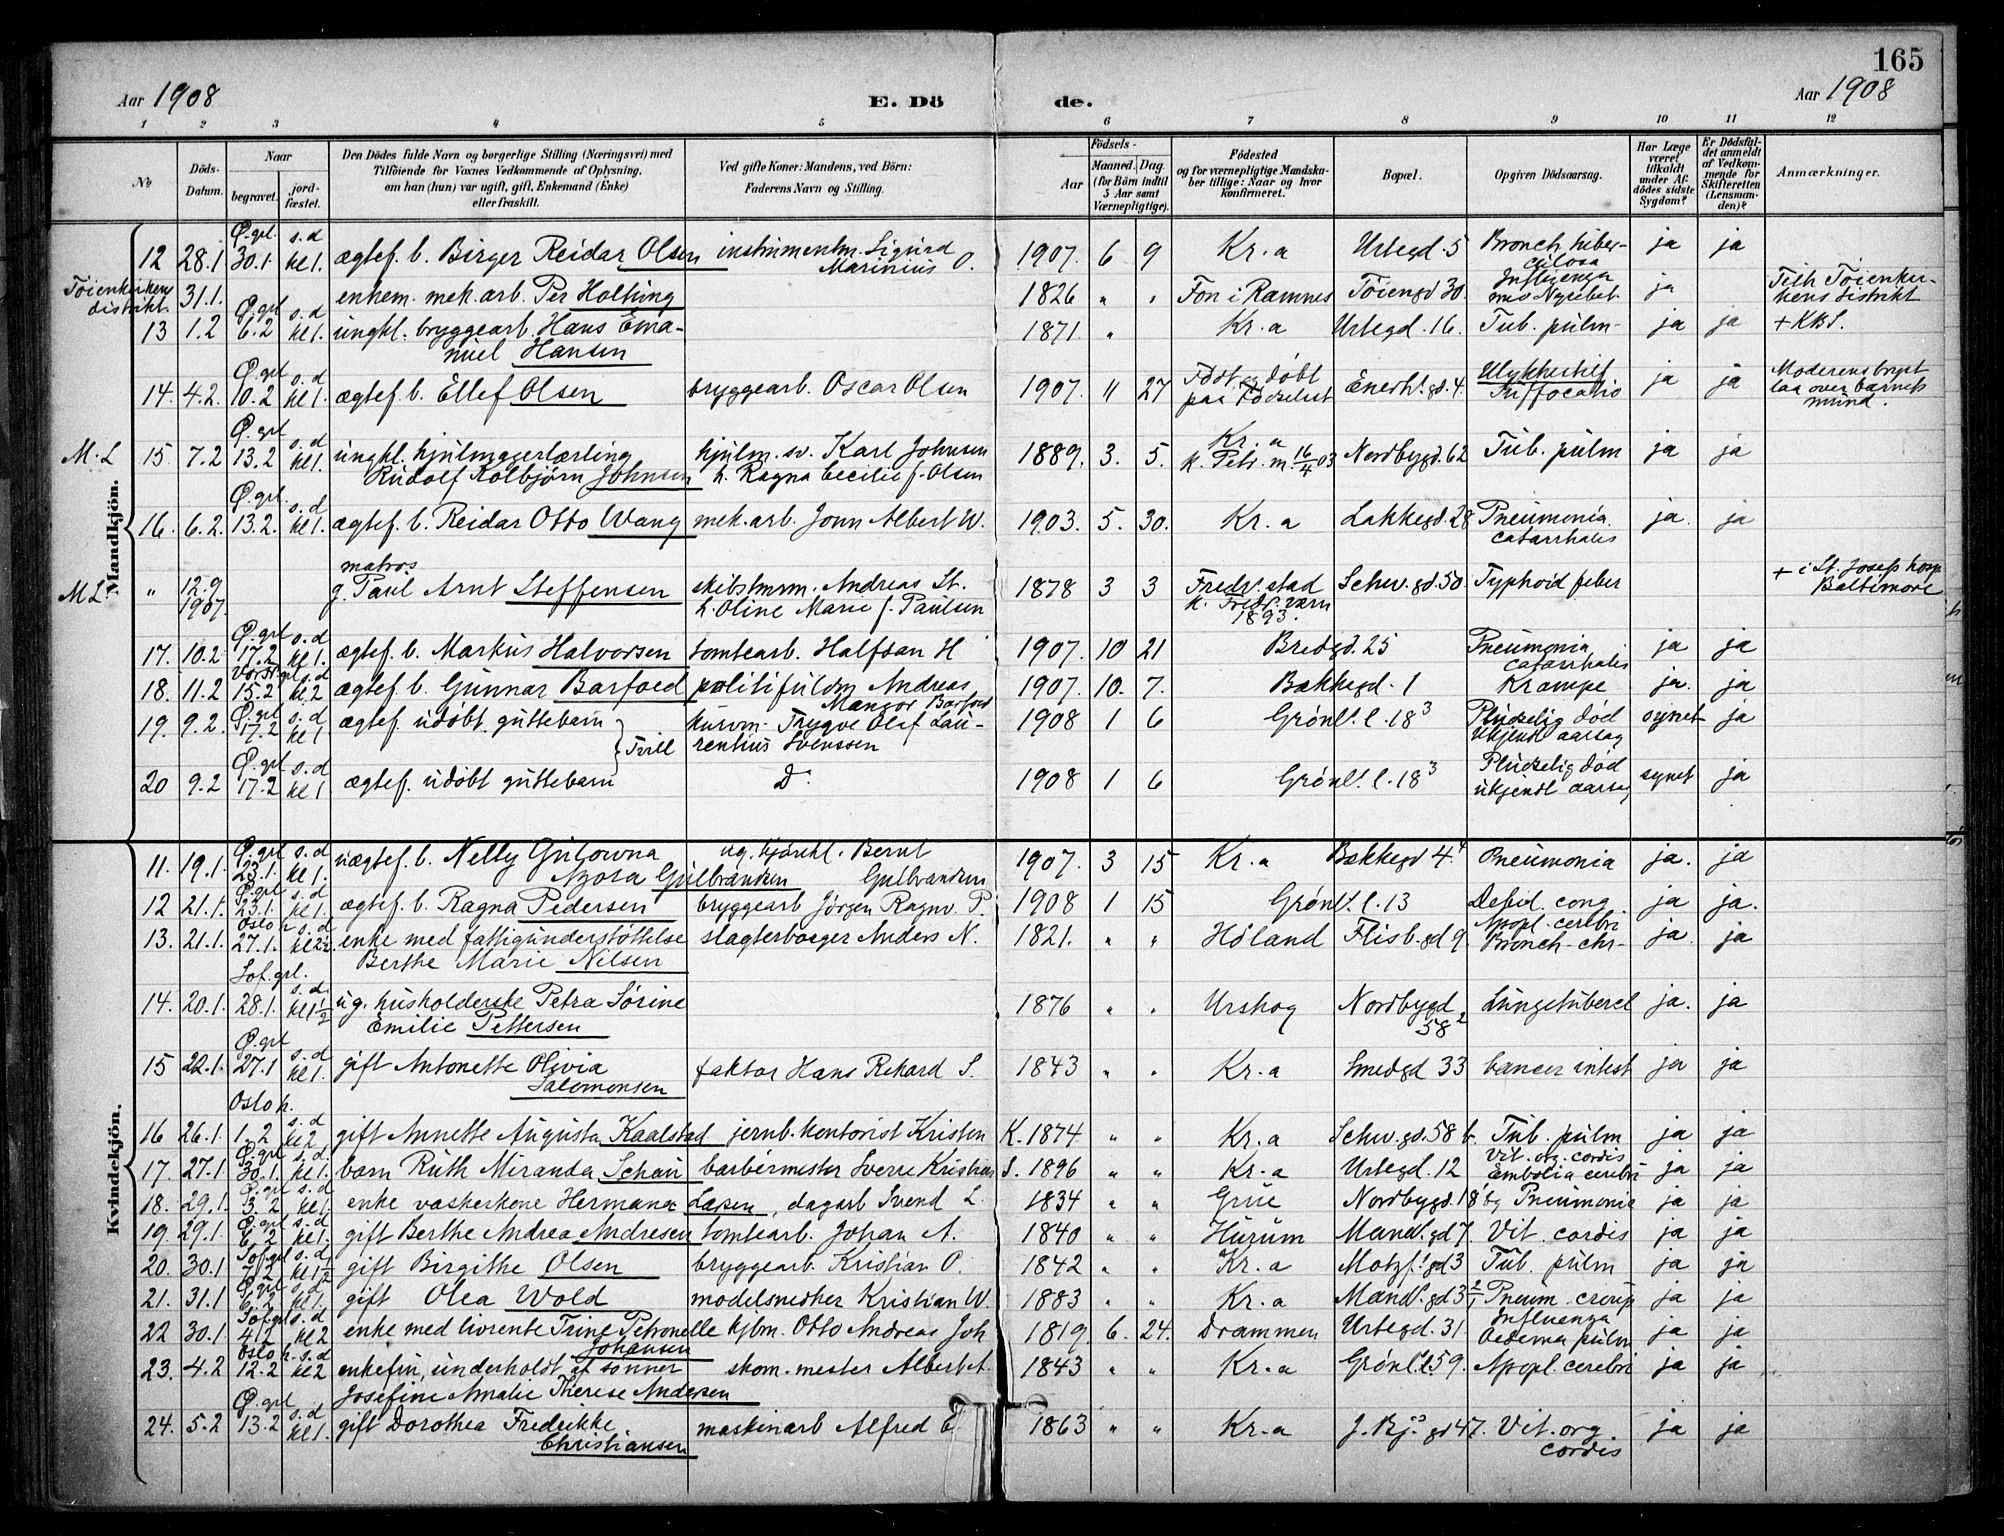 165
Aar 1908 E. Dö de. Aar 1908
1 2 3 4 5 6 7 8 9 10 11 12
№ Döds-Datum. Naar begravet. jordfæstet. Den Dödes fulde Navn og borgerlige Stilling (Næringsvei) med Tilföiende for Voxnes Vedkommende af Oplysning, om han (hun) var ugift, gift, Enkemand (Enke) eller fraskilt. Ved gifte Koner: Mandens, ved Börn: Faderens Navn og Stilling. Födsels- Aar Maaned. Dag. (for Börn indtil 5 Aar samt Værnepligtige). Födested og for værnepligtige Mandskaber tillige: Naar og hvor konfirmeret. Bopæl. Opgiven Dödsaarsag. Har Læge været tilkaldt under Afdödes sidste Sygdom? Er Dödsfaldet anmeldt af Vedkommende for Skifteretten (Lensmanden)? Anmærkninger.
Mandkjön.
12 28.1 Ø.grl. 30.1. s.d kl 1. ægtef. b. Birger Reidar Olsen instrumentm. Sigurd Marinius O. 1907. 6 9 Kr.a Urtegd. 5 Bronch. tuberculosa ja ja
Töienkirkens distrikt. 31.1. enkem. mek. arb. Per Holtung 1826 " " Fon i Ramnes Töiengd 30. Influenza ja Tilh Töienkirkens distrikt
13 1.2 Ø.grl 6.2 s.d kl 1. ungkl. bryggearb. Hans Emanuel Hansen 1871. " Kr.a Urtegd. 16. Tub. pulm. ja ja + KBS.
14. 4.2. Ø.grl 10.2 s.d kl 1. ægtef. b. Ellef Olsen bryggearb. Oscar Olsen 1907. 11 27 Født og døbt paa Fødselsst Enerh. gd. 4. Ulykkestilf Suffocatio ja ja Moderens bryst laa over barnets mund.
M.L 15. 7.2 Ø.grl 13.2 s.d kl 1. ungkl. hjulmagerlærling Rudolf Kolbjørn Johnsen hjulm. sv. Karl Johnsen h. Ragna Cecilie f. Olsen 1889. 3. 5. Kr.a k. Petr. m. 16/4 03 Nordbygd. 62 Tub. pulm ja ja
16. 6.2. Ø.grl. 13.2. s.d kl 1. ægtef. b. Reidar Otto Wang mek. arb. John Albert W. 1903. 5. 30. Kr.a Lakkegd. 28 Pneumonia catarrhalis ja. ja
M L. " 12.9. 1907. matros g. Paul Arnt Steffensen skibstmm. Andreas St. h. Oline Marie f. Paulsen 1878 3 3 Fredr.stad k. Fredr.værn 1893. Schw. gd. 50 Typhoid feber + i St. Josefs hosp Baltimore
17. 10.2 Ø.grl 17.2 s.d kl 1. ægtef. b. Markus Halvorsen tomtearb. Halfdan H 1907. 10 21 Bredgd. 25 Pneumonia catarrhalis ja ja
18. 11.2 15.2 s.d kl 2 ægtef. b. Gunnar Barfoed politifuldm Andreas Mangor Barfoed 1907. 10. 7. Bakkegd. 1 Krampe ja. ja
19. 9.2 Ø.grl 17.2 s.d kl 1 ægtef. udøbt guttebarn } Tvill kurvm. Trygve Olaf Laurentius Svenssen 1908 1 6 Grønl. l. 18³ Pludselig død ukjendt aarsag synet ja
20 9.2 Ø.grl 17.2 s.d kl 1 ægtef. udøbt guttebarn Dº 1908 1 6 Grønl. l. 18³ Pludselig død ukjendt aarsag synet ja
Kvindekjön.
11. 19.1. Ø.grl 23.1. s.d kl 1. uægtef. b. Nelly Gulowna Gulbrandsen ug. Bernt Gulbrandsen 1907. 3 15 Kr.a Bakkegd 4. Pneumonia ja. ja
12 21.1. Ø.grl 23.1. s.d kl 1. ægtef. b. Ragna Pedersen bryggearb Jørgen Ragnv. P. 1908 1 15 Grønl. l. 13 Debil. cong ja ja.
13. 21.1. Oslo h 27.1. s.d kl 2½ enke med fattigunderstøttelse Berthe Marie Nilsen slagterborger Anders N. 1821. " " Høland Flisb. gd 9. Apopl. cerebri Bronch. chr. ja. ja
14. 20.1. Sof.grl. 28.1. s.d. kl 1½ ug. husholderske Petra Sørine Emilie Pettersen 1876 " " Urskog Nordbygd 58² Lungetubercl ja. ja
15 22.1. Ø.grl 27.1 s.d kl 1. gift Antonette Olivia Salomonsen faktor Hans Rikard S. 1843 " " Kr.a Smedgd 33 cancer intest ja ja
16 26.1. Oslo h. 1.2 s.d kl 2 gift Annette Augusta Kaalstad jernb. kontorist Kristen K. 1874 " " Kr.a Schw. gd. 58 b. Tub. pulm ja ja
17. 27.1. Ø.grl 30.1. s.d. kl 1. barn Ruth Miranda Schau barbérmester Sverre Kristian S. 1896 " " Kr.a Urtegd. 12 Vit. org. cordis Embolia cerebri ja ja
18. 29.1. Ø.grl 3.2 s.d kl 1. enke vaskerkone Hermana Larsen, dagarb Svend L. 1834 " " Grue Nordbygd. 18 bg Pneumonia ja ja
19. 29.1. Ø.grl 6.2 s.d kl 1. gift Berthe Andrea Andresen tomtearb. Johan A. 1840 " " Hurum Mandl. gd 7. Vit. cordis ja ja
20. 30.1 Sof.grl 7.2 s.d kl 1½ gift Birgithe Olsen bryggearb. Kristian O. 1842 " " Kr.a Motzf. gd 3 Tub. pulm ja ja
21. 31.1 Ø.grl 6.2 s.d kl 1. gift Olea Wold modelsnedker Kristian W. 1883 " " Kr.a Mandl. gd 3 Pneum. croup ja ja
22 30.1 Sof.grl 4.2 s.d kl 2 enke med livrente Trine Petronelle Johansen kjbm. Otto Andreas Joh 1819 6. 24. Drammen Urtegd. 31 Influenza Oedema pulm ja ja
23. 4.2 Oslo h. 12.2 s.d kl 2 enkefru, underholdt af sønner Josefine Amalie Therese Andersen skom. mester Albert A. 1843 " " Kr.a Grønl. l. 59. Apopl. cerebri ja ja
24. 5.2 Ø.grl 13.2 s.d kl 1. gift Dorothea Fredrikke Christiansen maskinarb Alfred C 1863 " " Kr.a J. Bj. gd 47. Vit. org. cordis ja ja